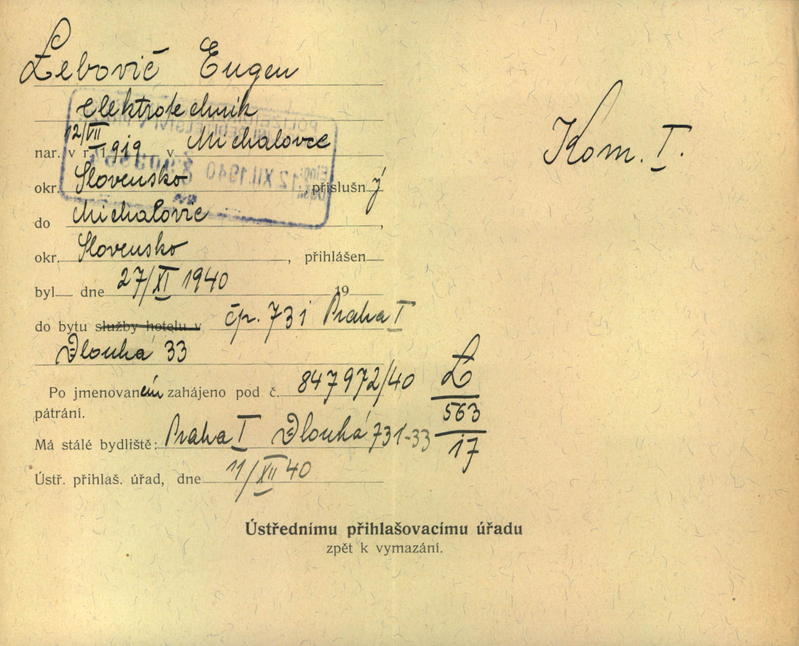 Lebovič Eugen
elektrotechnik
nar. v r. 12/VII 1919 v Michalovce
okr. Slovensko, příslušný
do Michalovce,
okr. Slovensko, přihlášen
byl dne 27/XI 1940 19
do bytu služby hotelu v čp. 731 Praha I
Dlouhá 33
Po jmenovaném zahájeno pod č. 847972/40
pátrání.
Má stálé bydliště: Praha I Dlouhá 731-33
Ústř. přihlaš. úřad, dne 11/XII 40
L
563
17
Kom. I.
12 XII. 1940
Ústřednímu přihlašovacímu úřadu
zpět k vymazání.